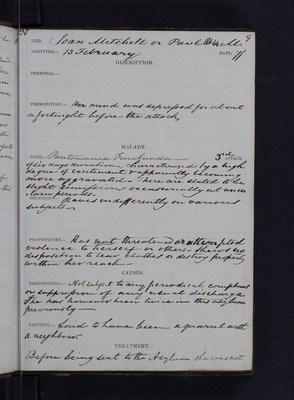 9
NAME. Jean Mitchell or Paul
ADMITTED.— 13 February DATE,
DESCRIPTION.
PERSONAL.—
PREMONITORY.— Her mind was depressed for about
a fortnight before the attack
MALADE.
3rd ATTACK
of six days duration characterized by a high
degree of excitement & apparently becoming
more aggravated. There are stated to be
slight remissions occasionally at uncer-
tain periods.
DELUSIONS. Raves indifferently on various
subjects.—
PROPENSITIES.— Has not threatened or attempted
violence to herself or others. Shews no
disposition to tear clothes or destroy property
within her reach—
CAUSES.
PREDISPOSING.— Not subject to any periodical complaint
or suppression of any usual discharge
She has however been twice in this asylum
previously—
EXCITING.— Said to have been a quarrel with
a neighbour.
TREATMENT.
Before being sent to the Asylum she was not